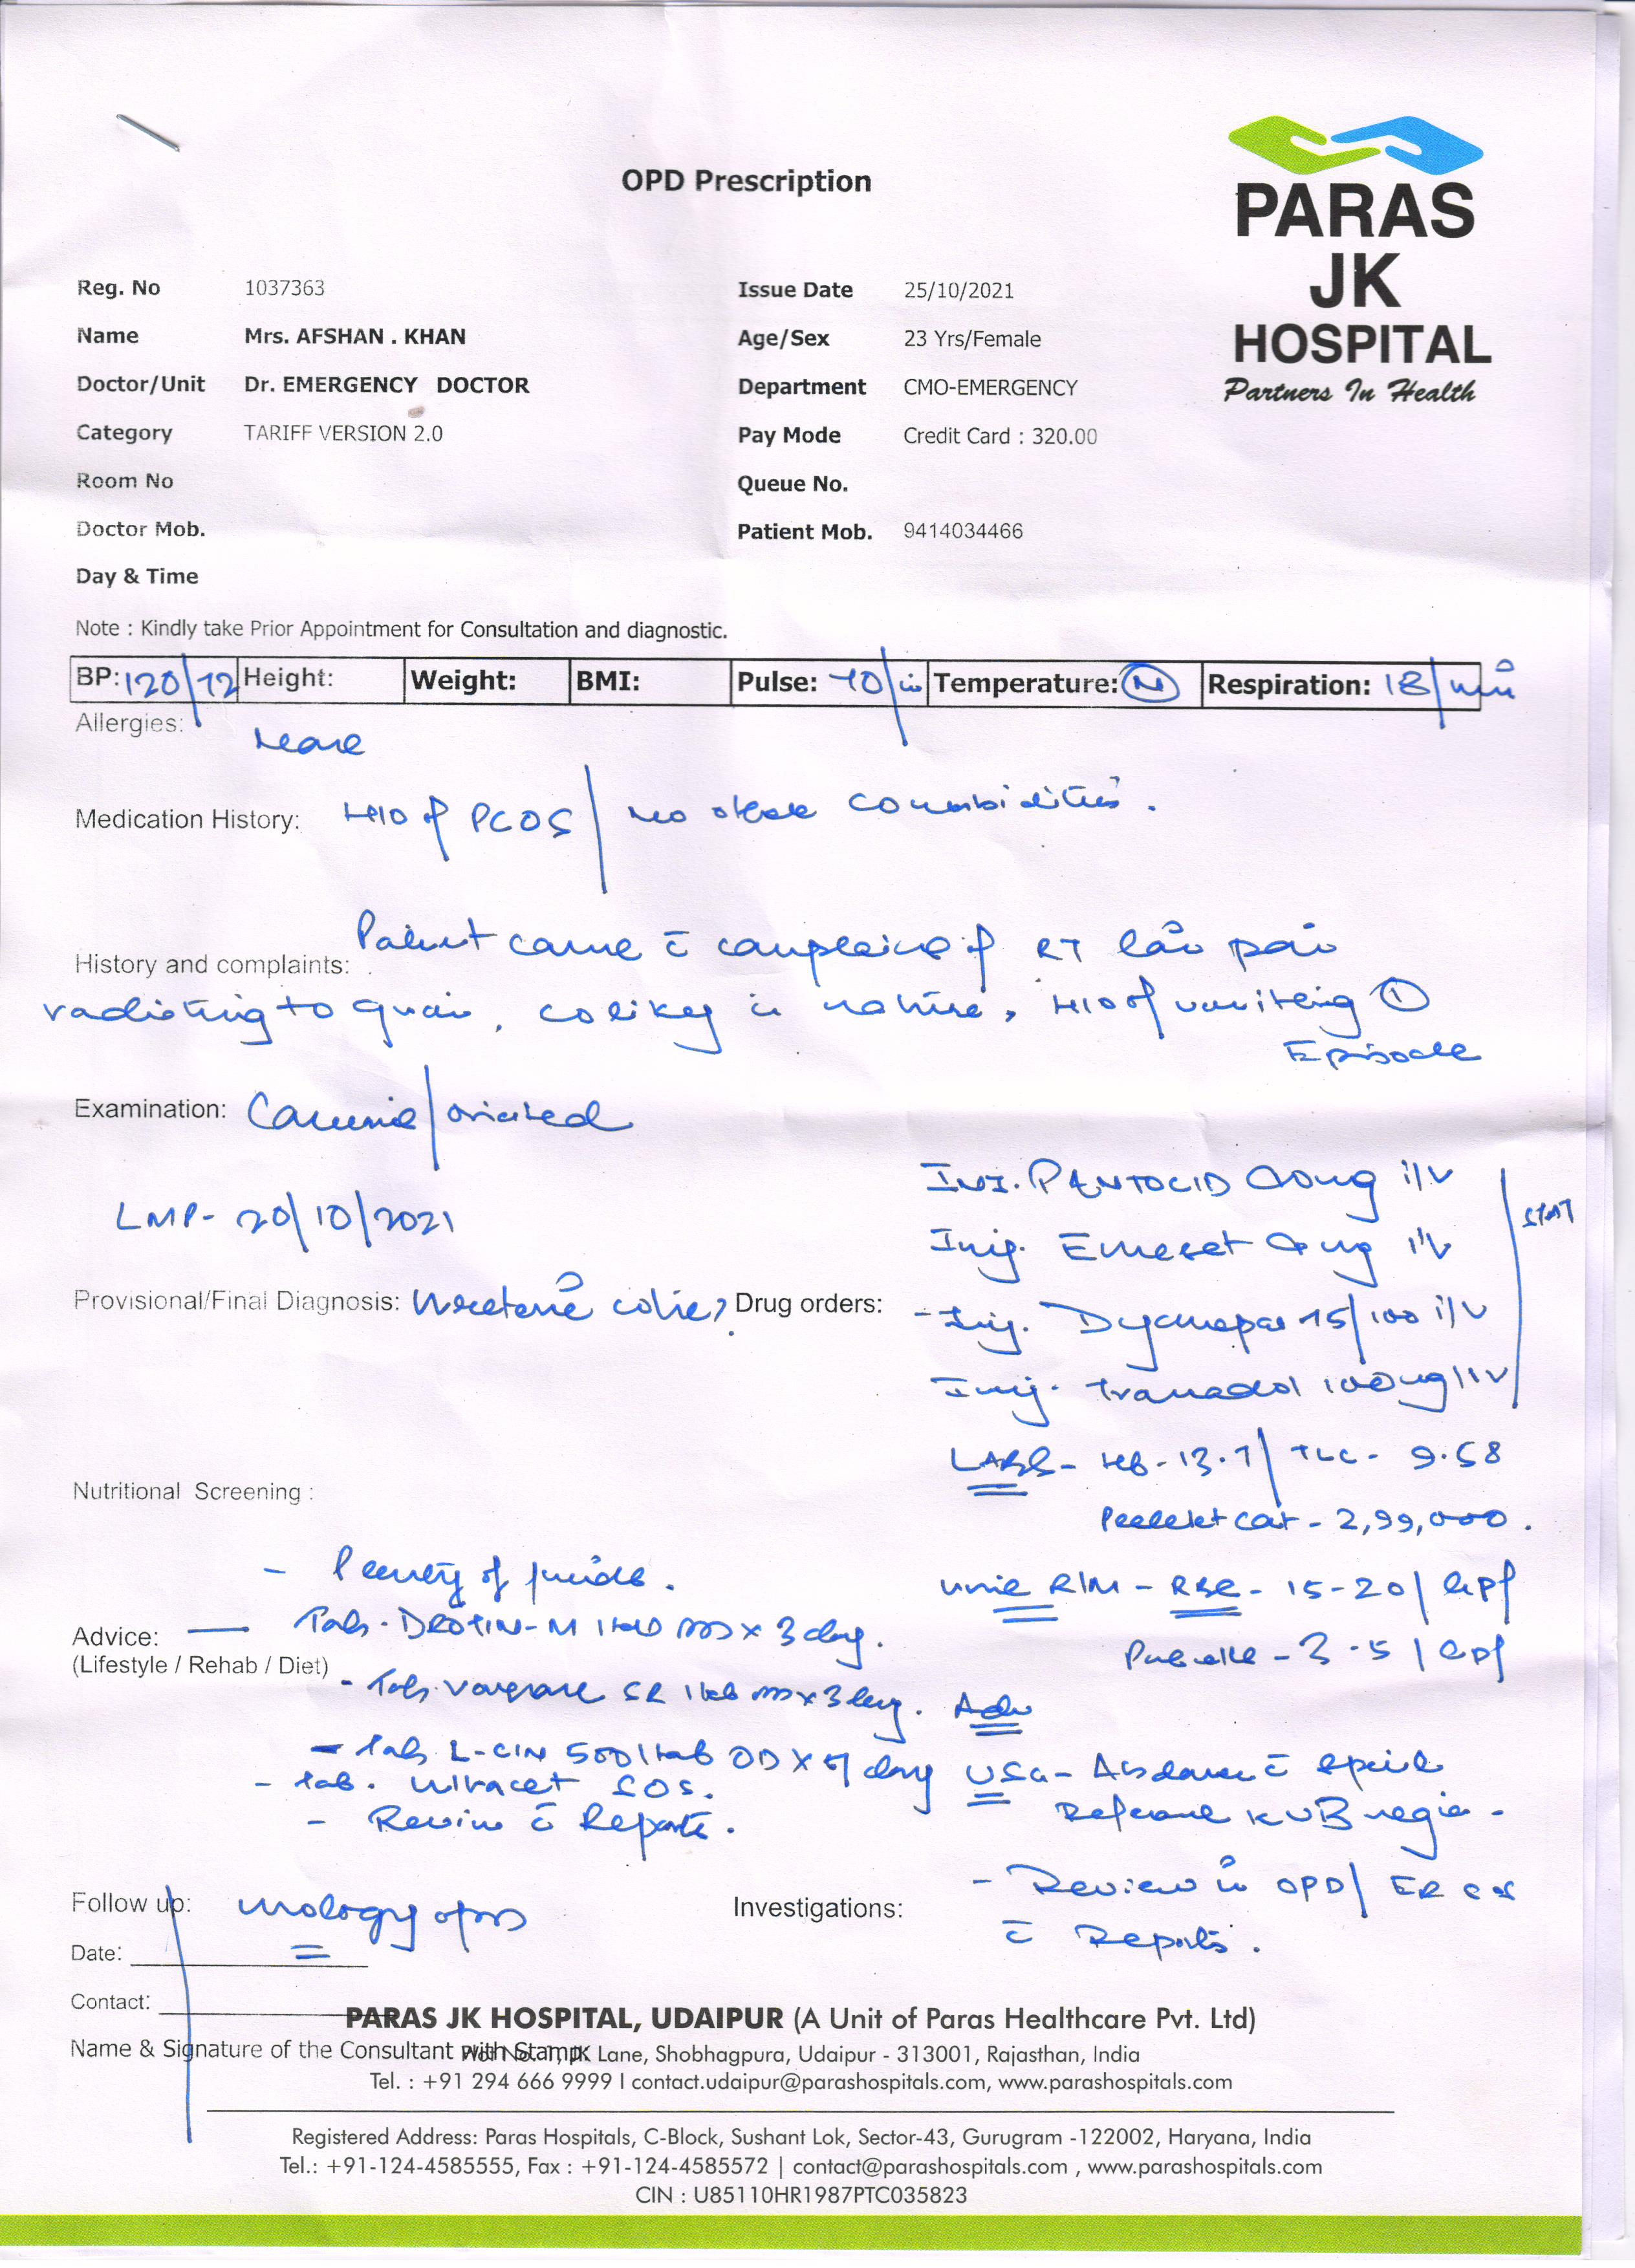 OPD Prescription
PARAS
JK
HOSPITAL
Partners In Health
Reg. No 1037363
Issue Date 25/10/2021
Name Mrs. AFSHAN . KHAN
Age/Sex 23 Yrs/Female
Doctor/Unit Dr. EMERGENCY DOCTOR
Department CMO-EMERGENCY
Category TARIFF VERSION 2.0
Pay Mode Credit Card : 320.00
Room No
Queue No.
Doctor Mob.
Patient Mob. 9414034466
Day & Time
Note : Kindly take Prior Appointment for Consultation and diagnostic.
BP: 120/72 Height: Weight: BMI: Pulse: 70/ Temperature: N Respiration: 18/min
Allergies: None
Medication History: H/O of PCOS / No other comorbidities.
Patient came c̄ complains of RT loin pain
History and complaints:
radiating to groin, colicky in nature, H/O of vomiting ①
Episode
Examination: Conscious/oriented
LMP- 20/10/2021
Inj. PANTOCID 40mg i/v
Inj. Emeset 4mg i/v
STAT
Provisional/Final Diagnosis: Ureteric colic? Drug orders:
- Inj. Dynapar 75/100 i/v
Inj. Tramadol 100mg i/v
LABS - Hb - 13.7 / TLC - 9.58
Nutritional Screening :
Platelet cnt - 2,99,000.
- Plenty of fluids.
urine R/M - RBC - 15-20/hpf
Advice: — Tab. DROTIN-M 1tab x 3 day.
Pus cells - 3-5/hpf
(Lifestyle / Rehab / Diet)
- Tab. SR 1tab x 3 day.
Adv
- Tab. L-CIN 500 1tab OD X 7 day
USG - Abdomen c̄ special
- tab. Ultracet SOS.
Reference KUB region -
- Review c̄ Reports.
- Review in OPD/ ER
c̄ Reports.
Follow up: urology opd
Investigations:
Date:
Contact:
PARAS JK HOSPITAL, UDAIPUR (A Unit of Paras Healthcare Pvt. Ltd)
Name & Signature of the Consultant with Stamp
Lane, Shobhagpura, Udaipur - 313001, Rajasthan, India
Tel. : +91 294 666 9999 I contact.udaipur@parashospitals.com, www.parashospitals.com
Registered Address: Paras Hospitals, C-Block, Sushant Lok, Sector-43, Gurugram -122002, Haryana, India
Tel.: +91-124-4585555, Fax : +91-124-4585572 | contact@parashospitals.com , www.parashospitals.com
CIN : U85110HR1987PTC035823